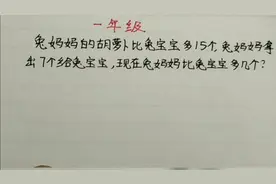 一年级
兔妈妈的胡萝卜比兔宝宝多15个,兔妈妈拿
出7个给兔宝宝,现在兔妈妈比兔宝宝多几个?